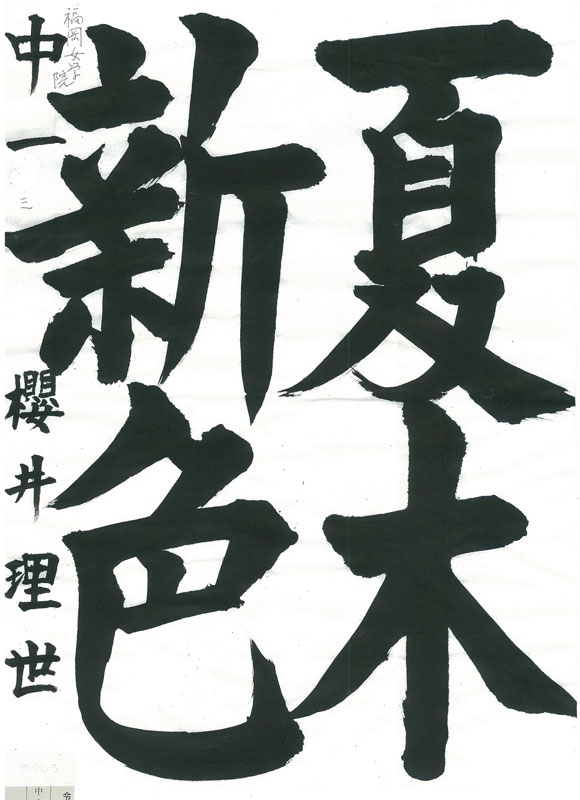 夏木
新色
福岡女学院
中一 櫻井理世
三
のりしろ
中
令